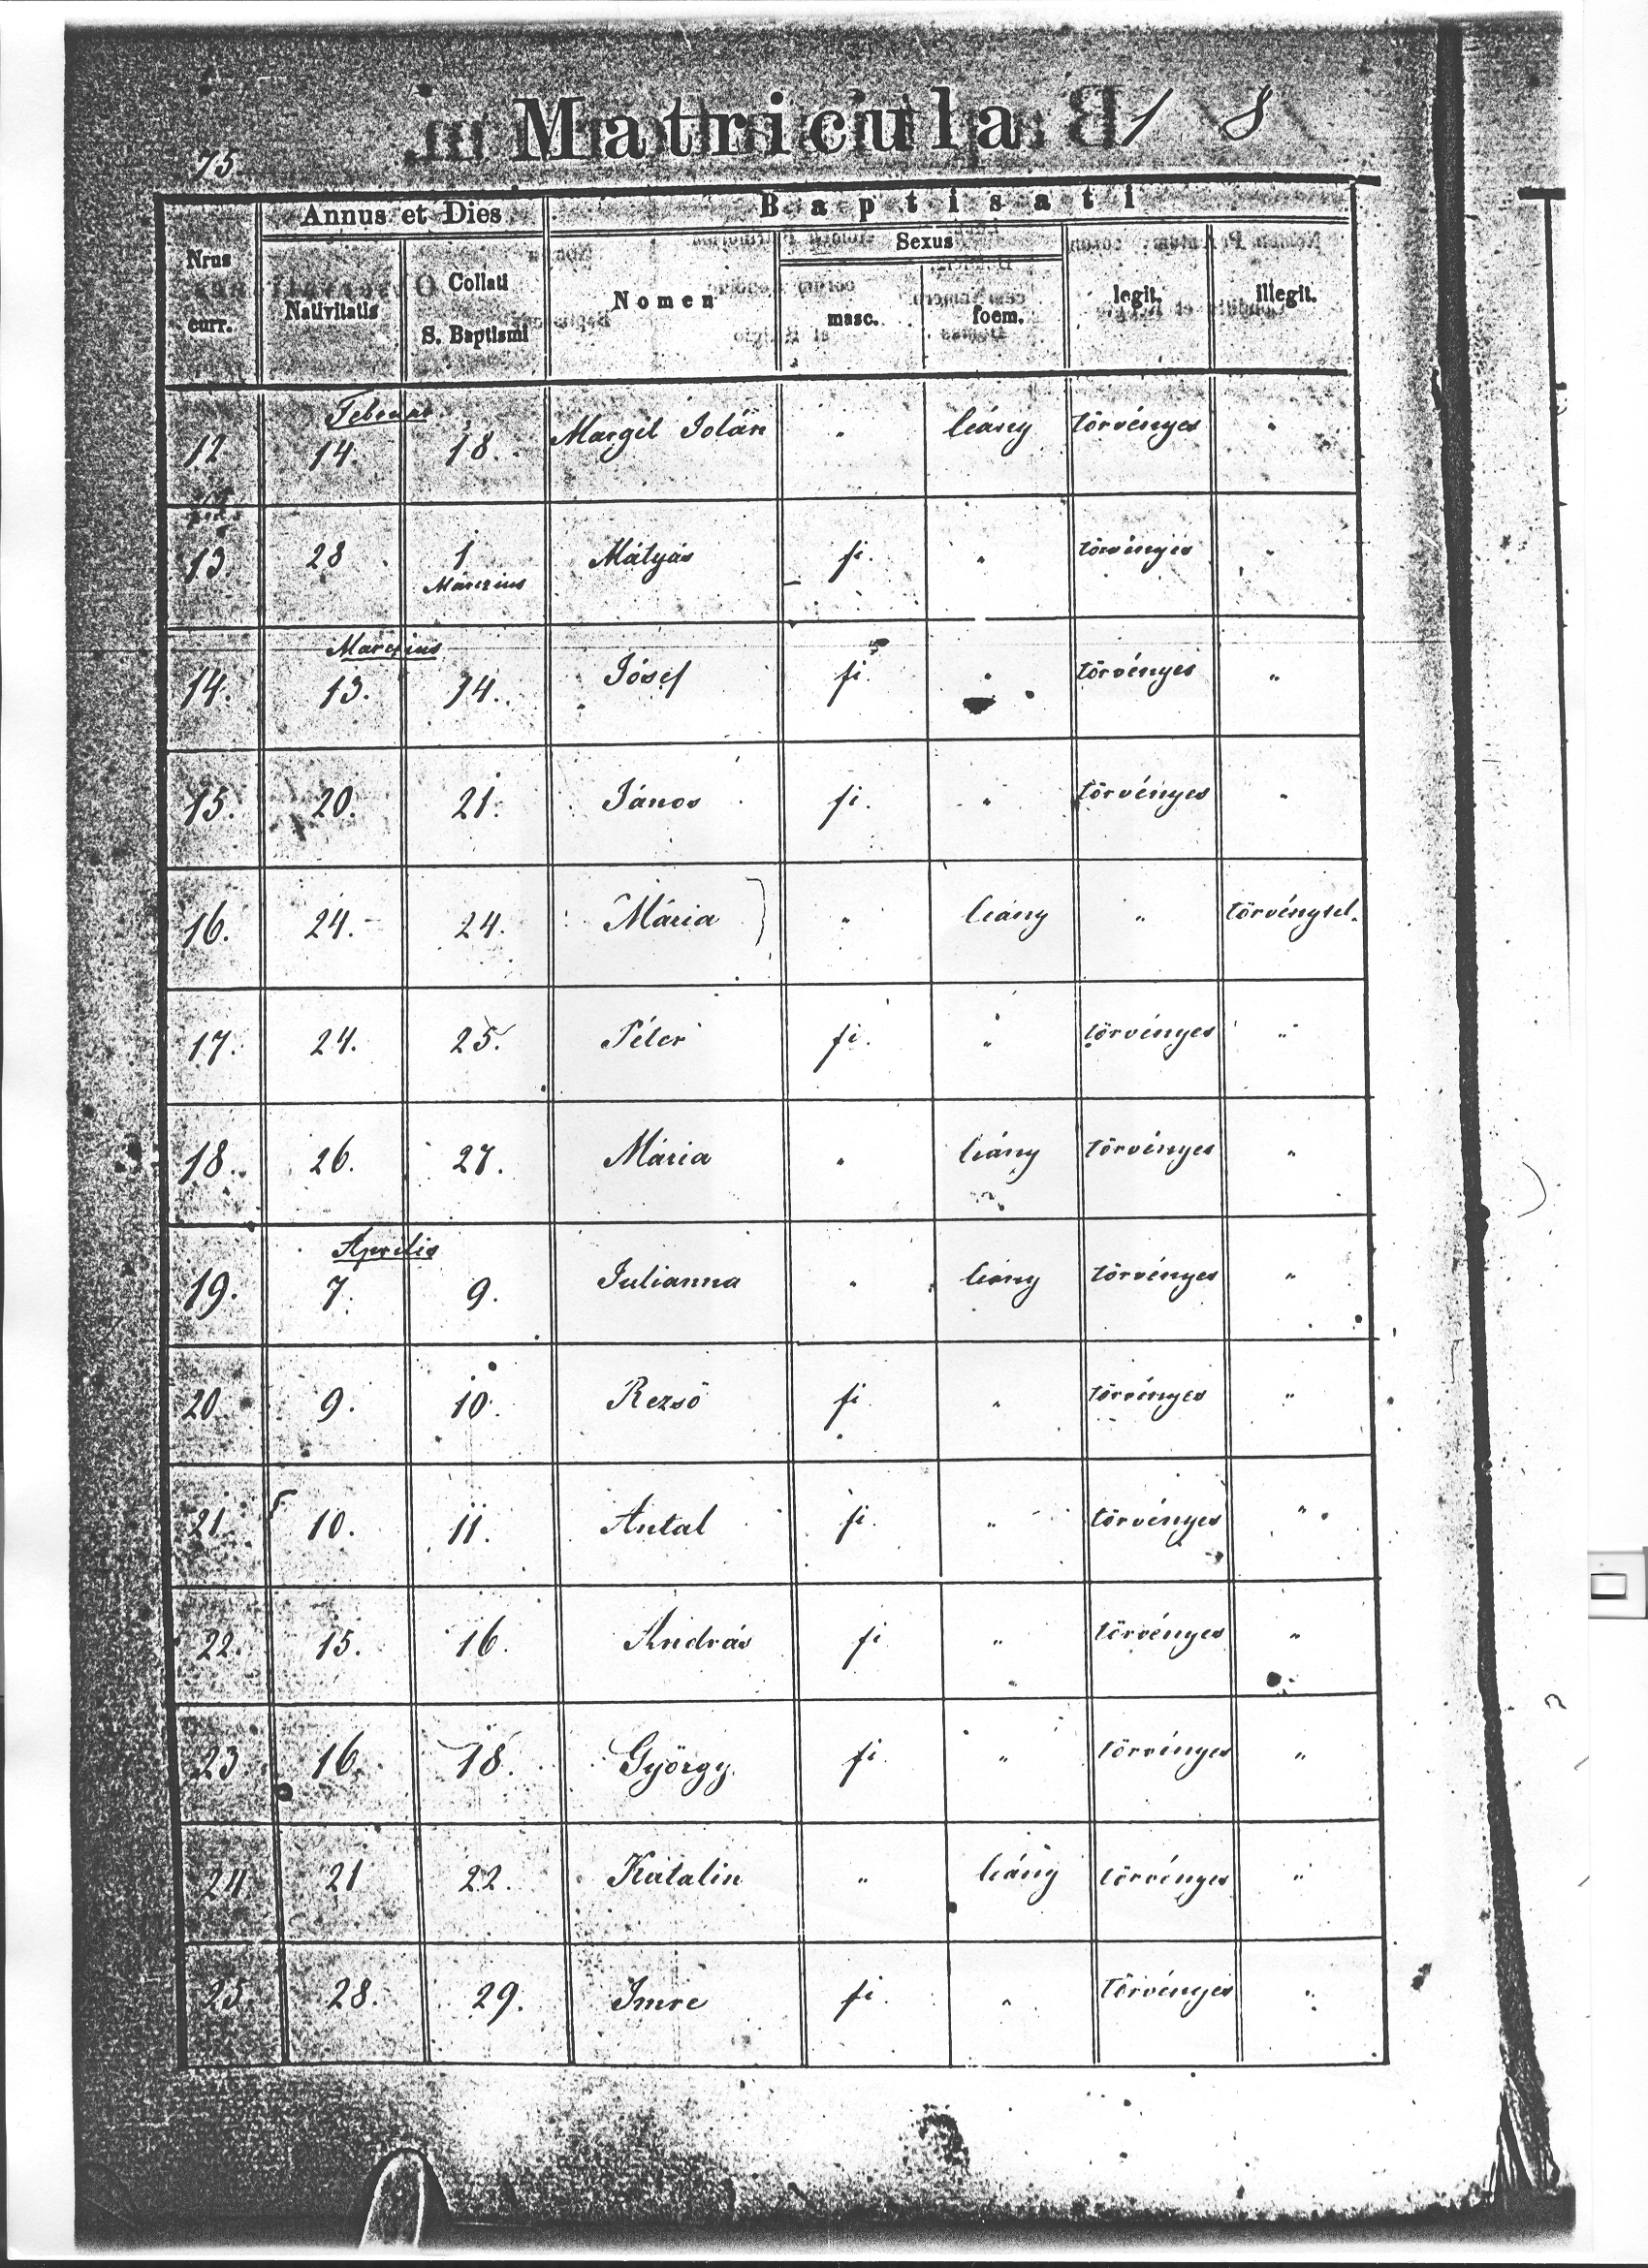 Matricula 18
75.
Annus et Dies Baptisati
Nrus curr. Nativitatis Collati S. Baptismi Nomen Sexus masc. foem. legit. illegit.
Februar
12 14. 18. Margit Iolán " leány törvényes "
13. 28 1 Márczius Mátyás fi. " törvényes "
Marczius
14. 13. 14. Iósef fi. " törvényes "
15. 20. 21. Iános fi. " törvényes "
16. 24. 24. Mária " leány " törvénytel.
17. 24. 25. Péter fi. " törvényes "
18. 26. 27. Mária " leány törvényes "
Aprilis
19. 7. 9. Iulianna " leány törvényes "
20 9. 10. Rezsö fi " törvényes "
21. 10. 11. Antal fi. " törvényes "
22. 15. 16. András fi " törvényes "
23 16. 18. György fi. " törvényes "
24 21 22. Katalin " leány törvényes "
25. 28. 29. Imre fi. " törvényes "